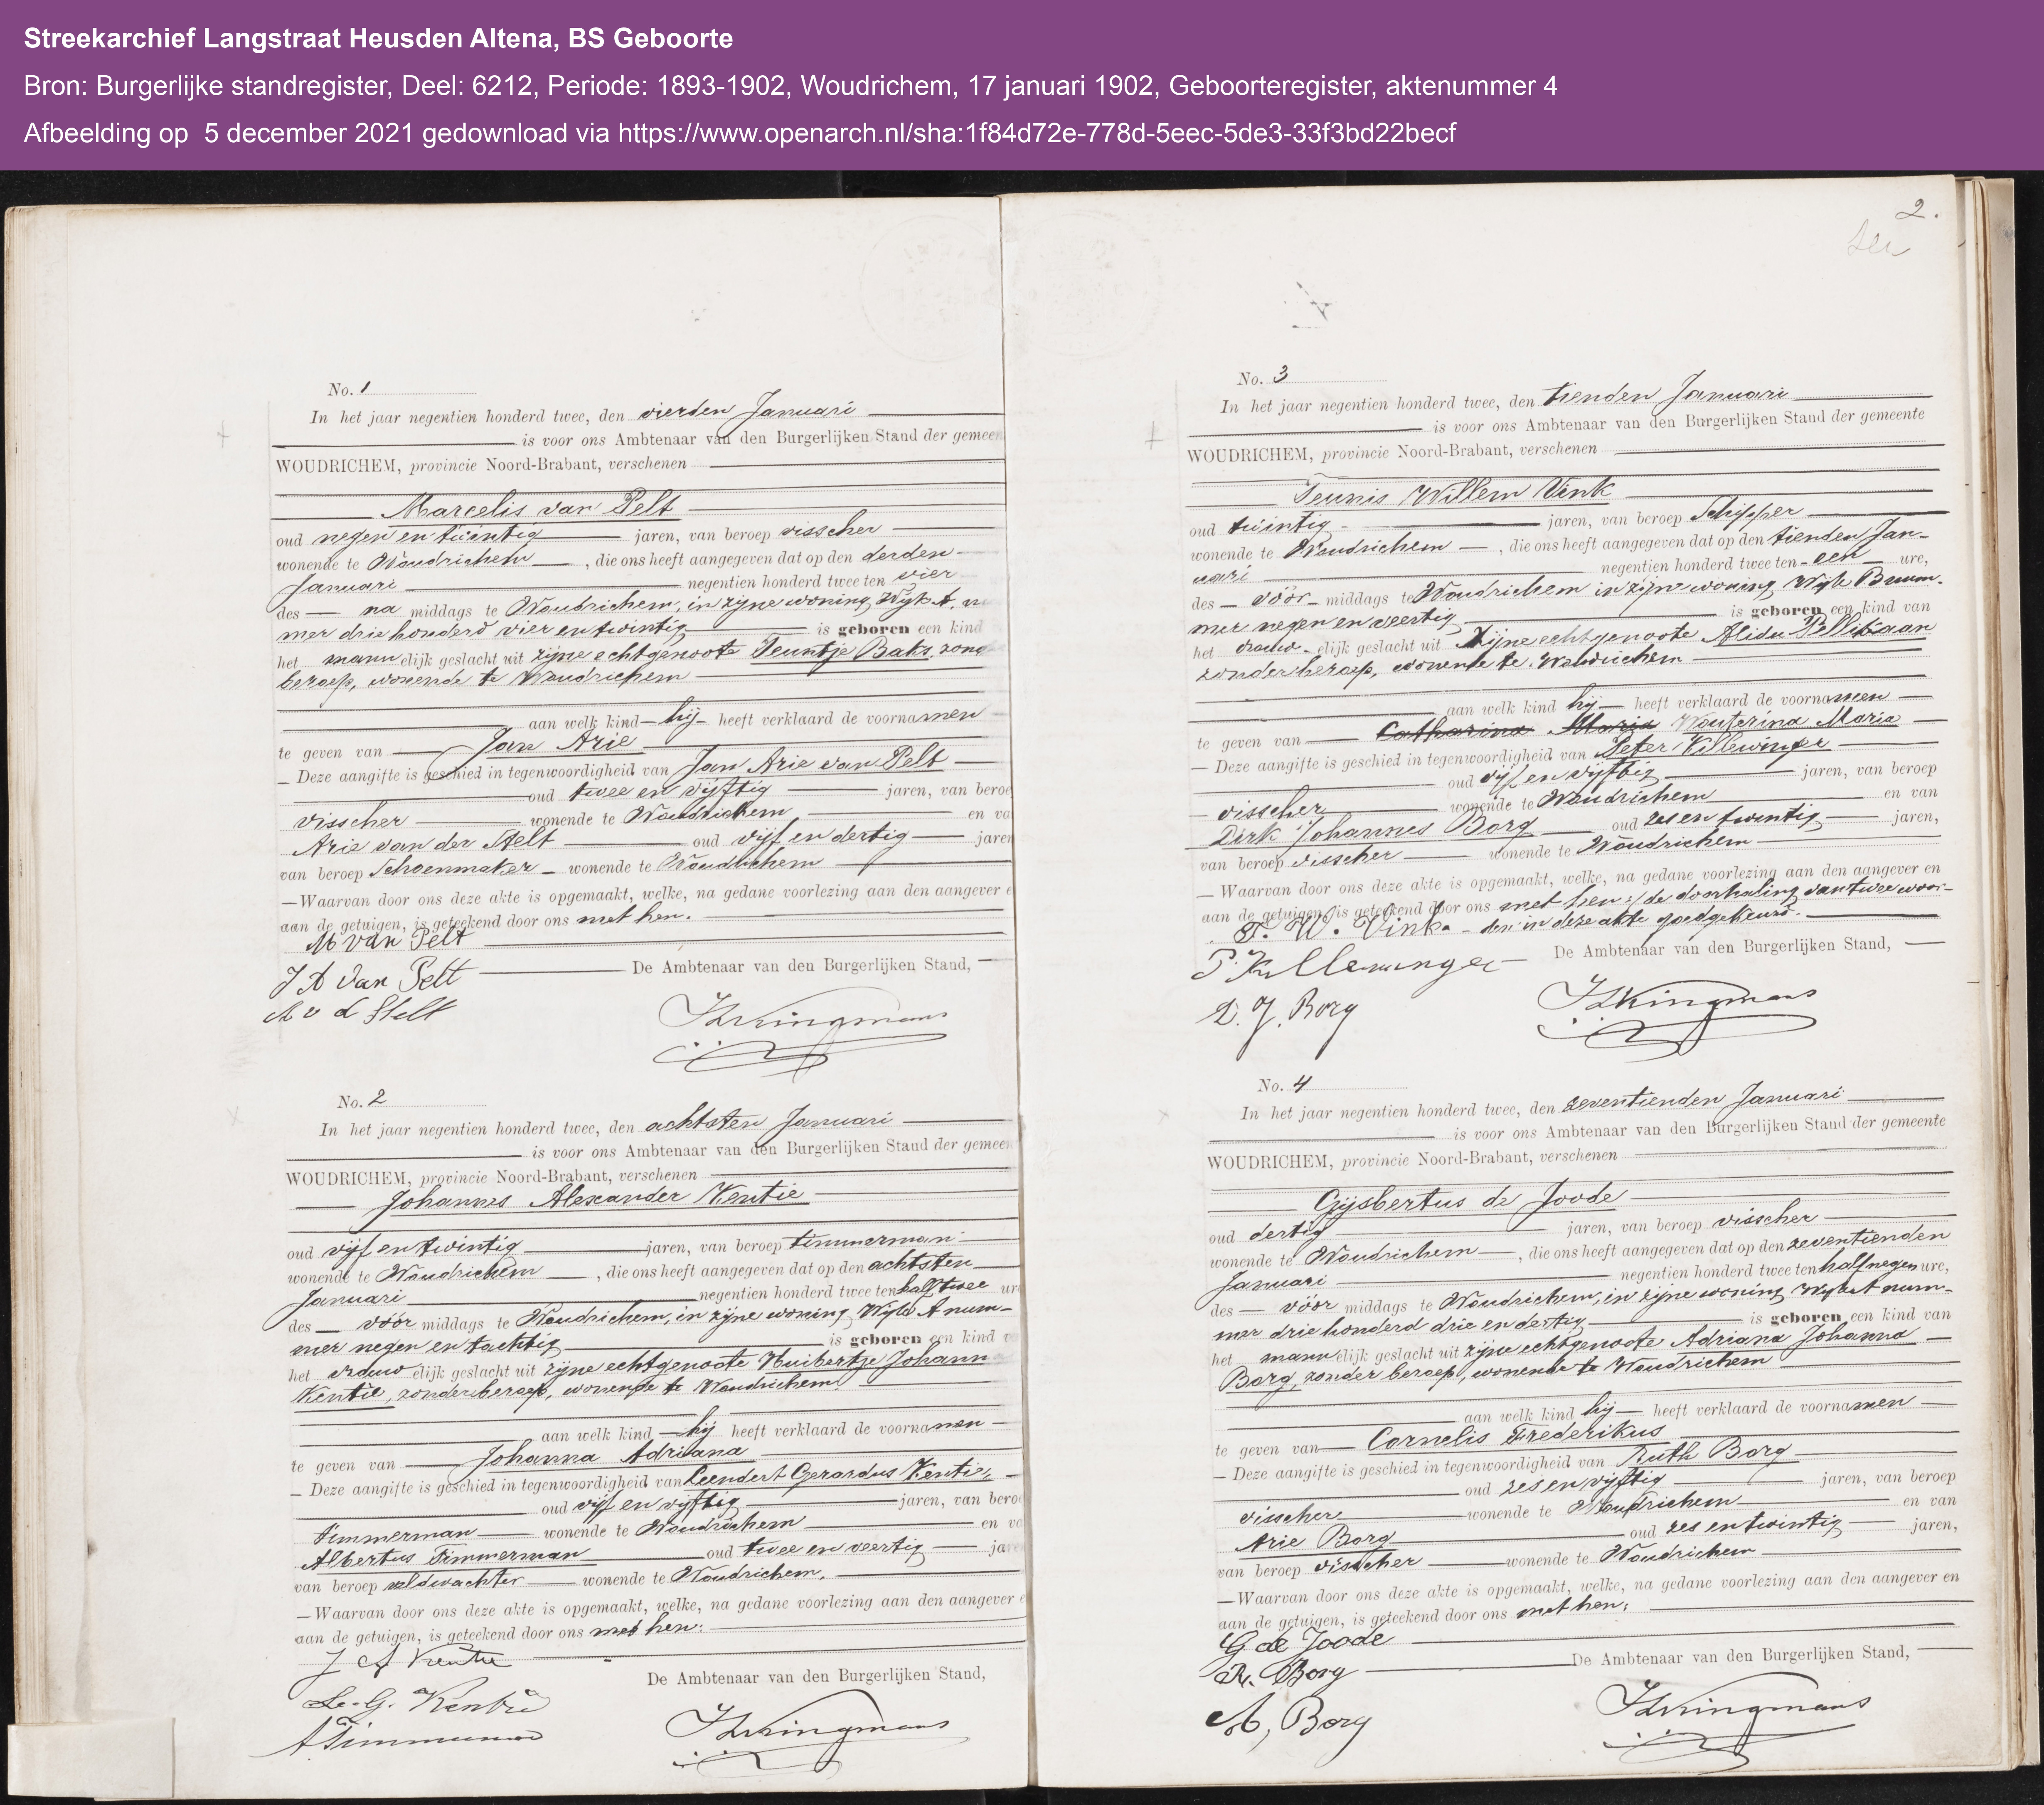 Streekarchief Langstraat Heusden Altena, BS Geboorte
Bron: Burgerlijke standregister, Deel: 6212, Periode: 1893-1902, Woudrichem, 17 januari 1902, Geboorteregister, aktenummer 4
Afbeelding op 5 december 2021 gedownload via https://www.openarch.nl/sha:1f84d72e-778d-5eec-5de3-33f3bd22becf
No. 1
In het jaar negentien honderd twee, den vierden Januari
is voor ons Ambtenaar van den Burgerlijken Stand der gemeen
WOUDRICHEM, provincie Noord-Brabant, verschenen
Marcelis van Pelt
oud negen en twintig jaren, van beroep visscher
wonende te Woudrichem, die ons heeft aangegeven dat op den derden
Januari negentien honderd twee ten vier
des na middags te Woudrichem, in zijne woning, Wijk A. nu
mer drie honderd vier en twintig is geboren een kind
het mannelijk geslacht uit zijne echtgenoote Teuntje Baks, zond
beroep, wonende te Woudrichem
aan welk kind hij heeft verklaard de voornamen
te geven van Jan Arie
Deze aangifte is geschied in tegenwoordigheid van Jan Arie van Pelt
oud twee en vijftig jaren, van beroe
visscher wonende te Woudrichem, en va
Arie van der Stelt oud vijf en dertig jaren
van beroep Schoenmaker wonende te Woudrichem
—Waarvan door ons deze akte is opgemaakt, welke, na gedane voorlezing aan den aangever e
aan de getuigen, is geteekend door ons met hen.
M van Pelt
J A van Pelt De Ambtenaar van den Burgerlijken Stand,
A v d Stelt
Kingmans
No. 2
In het jaar negentien honderd twee, den achtsten Januari
is voor ons Ambtenaar van den Burgerlijken Stand der gemeen
WOUDRICHEM, provincie Noord-Brabant, verschenen
Johannes Alexander Kentie
oud vijf en twintig jaren, van beroep timmerman
wonende te Woudrichem, die ons heeft aangegeven dat op den achtsten
Januari negentien honderd twee ten half twee ure
des vóór middags te Woudrichem, in zijne woning, Wijk A num-
mer negen en tachtig is geboren een kind v
het vrouwelijk geslacht uit zijne echtgenoote Huibertje Johann
Kentie, zonder beroep, wonende te Woudrichem.
aan welk kind hij heeft verklaard de voornamen
te geven van Johanna Adriana
— Deze aangifte is geschied in tegenwoordigheid van Leendert Gerardus Kentie,
oud vijf en vijftig jaren, van beroe
timmerman wonende te Woudrichem en va
Albertus Timmerman oud twee en veertig jare
van beroep veldwachter wonende te Woudrichem,
—Waarvan door ons deze akte is opgemaakt, welke, na gedane voorlezing aan den aangever e
aan de getuigen, is geteekend door ons met hen.
J A Kentie
De Ambtenaar van den Burgerlijken Stand,
L. G. Kentie
A Timmerman
Kingmans
2.
No. 3
In het jaar negentien honderd twee, den tienden Januari
is voor ons Ambtenaar van den Burgerlijken Stand der gemeente
WOUDRICHEM, provincie Noord-Brabant, verschenen
Teunis Willem Vink
oud twintig jaren, van beroep Schipper
wonende te Woudrichem, die ons heeft aangegeven dat op den tienden Jan-
uari negentien honderd twee ten een ure,
des vóór middags te Woudrichem in zijne woning, Wijk B num-
mer negen en veertig is geboren een kind van
het vrouwelijk geslacht uit zijne echtgenoote Alida Pellikaan
zonder beroep, wonende te Woudrichem
aan welk kind hij heeft verklaard de voornamen
te geven van Catharina Maria Wouterina Maria
— Deze aangifte is geschied in tegenwoordigheid van Peter Killewinger
oud vijf en vijftig jaren, van beroep
visscher wonende te Woudrichem en van
Dirk Johannes Borg oud zes en twintig jaren,
van beroep visscher wonende te Woudrichem
— Waarvan door ons deze akte is opgemaakt, welke, na gedane voorlezing aan den aangever en
aan de getuigen, is geteekend door ons met hen; de doorhaling van twee woor-
T. W. Vink. - den in deze akte goedgekeurd.
P. Killewinger De Ambtenaar van den Burgerlijken Stand,
D. J. Borg
Kingmans
No. 4
In het jaar negentien honderd twee, den zeventienden Januari
is voor ons Ambtenaar van den Burgerlijken Stand der gemeente
WOUDRICHEM, provincie Noord-Brabant, verschenen
Gijsbertus de Joode
oud dertig jaren, van beroep visscher
wonende te Woudrichem, die ons heeft aangegeven dat op den zeventienden
Januari negentien honderd twee ten half negen ure,
des vóór middags te Woudrichem, in zijne woning, Wijk A num-
mer drie honderd drie en dertig is geboren een kind van
het mannelijk geslacht uit zijne echtgenoote Adriana Johanna
Borg, zonder beroep, wonende te Woudrichem
aan welk kind hij heeft verklaard de voornamen
te geven van Cornelis Frederikus
— Deze aangifte is geschied in tegenwoordigheid van Ruth Borg
oud zes en vijftig jaren, van beroep
visscher wonende te Woudrichem en van
Arie Borg oud zes en twintig jaren,
van beroep visscher wonende te Woudrichem
—Waarvan door ons deze akte is opgemaakt, welke, na gedane voorlezing aan den aangever en
aan de getuigen, is geteekend door ons met hen.
G de Joode
De Ambtenaar van den Burgerlijken Stand,
R. Borg
A, Borg
Kingmans